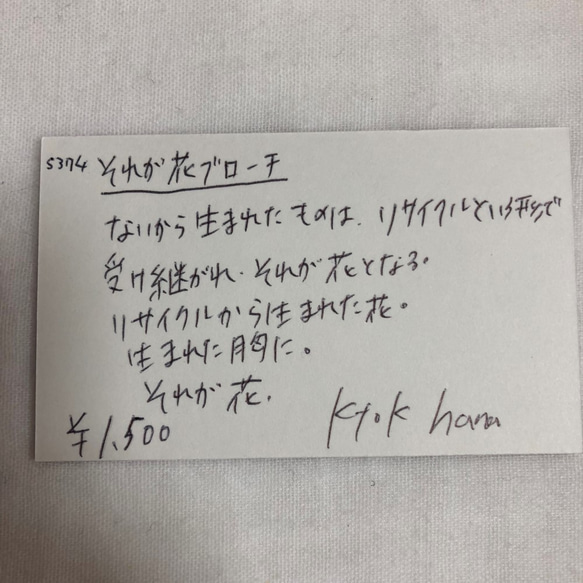 S374 それが花ブローチ
ないから生まれたものは、リサイクルという形で
受け継がれ、それが花となる。
リサイクルから生まれた花。
生まれた胸に。
それが花。
¥1,500
ktok hana